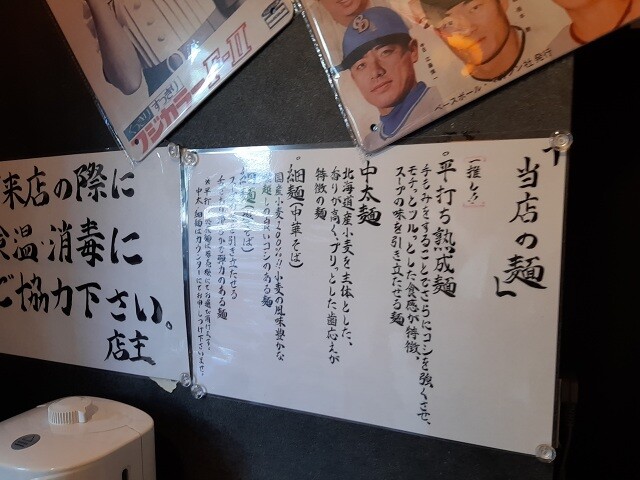 すっきり
フジカラーF-II
ベースボール・マガジン社発行
「当店の麺」
一推し!!
平打ち熟成麺
手もみをすることでさらにコシを強くさせ、
モチッとツルッとした食感が特徴。
スープの味を引き立たせる麺
中太麺
北海道産小麦を主体とした、
香りが高く、プリッとした歯応えが
特徴の麺
細麺(中華そば)
国産小麦100%!!小麦の風味豊かな
コシのある麺
スープを引き立たせる
弾力のある麺
来店の際に
検温・消毒に
ご協力下さい。
店主